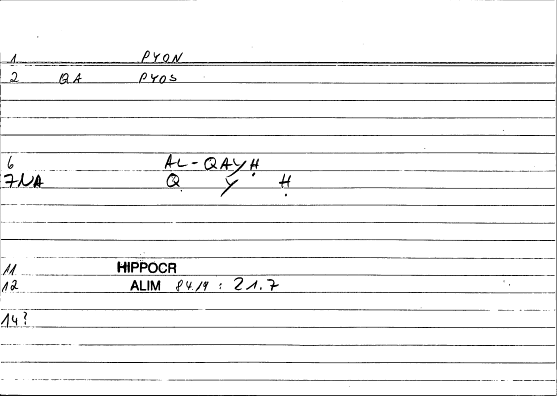 1 PYON
2 QA PYOS
6 AL-QAYḤ
7 NA Q Y Ḥ
11 HIPPOCR
12 ALIM 84.19 : 21.7
14?